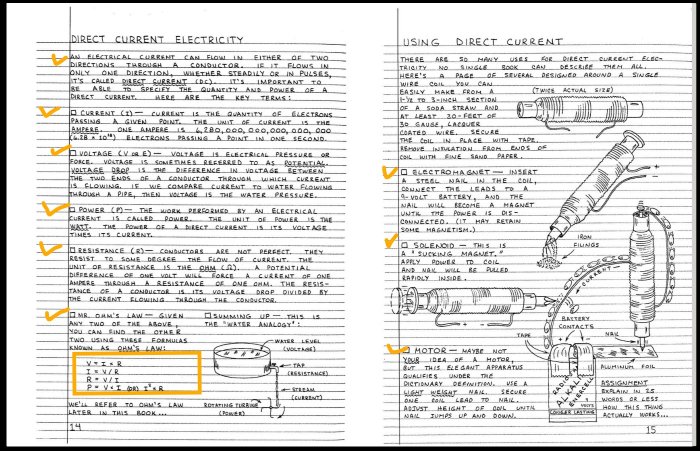 DIRECT CURRENT ELECTRICITY
AN ELECTRICAL CURRENT CAN FLOW IN EITHER OF TWO
DIRECTIONS THROUGH A CONDUCTOR. IF IT FLOWS IN
ONLY ONE DIRECTION, WHETHER STEADILY OR IN PULSES,
IT'S CALLED DIRECT CURRENT (DC). IT'S IMPORTANT TO
BE ABLE TO SPECIFY THE QUANTITY AND POWER OF A
DIRECT CURRENT. HERE ARE THE KEY TERMS:
□ CURRENT (I) — CURRENT IS THE QUANTITY OF ELECTRONS
PASSING A GIVEN POINT. THE UNIT OF CURRENT IS THE
AMPERE. ONE AMPERE IS 6,280,000,000,000,000,000
(6.28 × 10¹⁸) ELECTRONS PASSING A POINT IN ONE SECOND.
□ VOLTAGE (V OR E) — VOLTAGE IS ELECTRICAL PRESSURE OR
FORCE. VOLTAGE IS SOMETIMES REFERRED TO AS POTENTIAL.
VOLTAGE DROP IS THE DIFFERENCE IN VOLTAGE BETWEEN
THE TWO ENDS OF A CONDUCTOR THROUGH WHICH CURRENT
IS FLOWING. IF WE COMPARE CURRENT TO WATER FLOWING
THROUGH A PIPE, THEN VOLTAGE IS THE WATER PRESSURE.
□ POWER (P) — THE WORK PERFORMED BY AN ELECTRICAL
CURRENT IS CALLED POWER. THE UNIT OF POWER IS THE
WATT. THE POWER OF A DIRECT CURRENT IS ITS VOLTAGE
TIMES ITS CURRENT.
□ RESISTANCE (R) — CONDUCTORS ARE NOT PERFECT. THEY
RESIST TO SOME DEGREE THE FLOW OF CURRENT. THE
UNIT OF RESISTANCE IS THE OHM (Ω). A POTENTIAL
DIFFERENCE OF ONE VOLT WILL FORCE A CURRENT OF ONE
AMPERE THROUGH A RESISTANCE OF ONE OHM. THE RESIS-
TANCE OF A CONDUCTOR IS ITS VOLTAGE DROP DIVIDED BY
THE CURRENT FLOWING THROUGH THE CONDUCTOR.
□ MR. OHM'S LAW — GIVEN
ANY TWO OF THE ABOVE,
YOU CAN FIND THE OTHER
TWO USING THESE FORMULAS
KNOWN AS OHM'S LAW:
V = I × R
I = V/R
R = V/I
P = V × I (OR) I² × R
WE'LL REFER TO OHM'S LAW
LATER IN THIS BOOK...
□ SUMMING UP — THIS IS
THE "WATER ANALOGY":
WATER LEVEL
(VOLTAGE)
TAP
(RESISTANCE)
STREAM
(CURRENT)
ROTATING TURBINE
(POWER)
14
USING DIRECT CURRENT
THERE ARE SO MANY USES FOR DIRECT CURRENT ELEC-
TRICITY NO SINGLE BOOK CAN DESCRIBE THEM ALL.
HERE'S A PAGE OF SEVERAL DESIGNED AROUND A SINGLE
WIRE COIL YOU CAN
EASILY MAKE FROM A
1-½ TO 3-INCH SECTION
OF A SODA STRAW AND
AT LEAST 20-FEET OF
30 GAUGE, LACQUER
COATED WIRE. SECURE
THE COIL IN PLACE WITH TAPE.
REMOVE INSULATION FROM ENDS OF
COIL WITH FINE SAND PAPER.
(TWICE ACTUAL SIZE)
□ ELECTROMAGNET — INSERT
A STEEL NAIL IN THE COIL,
CONNECT THE LEADS TO A
9-VOLT BATTERY, AND THE
NAIL WILL BECOME A MAGNET
UNTIL THE POWER IS DIS-
CONNECTED. (IT MAY RETAIN
SOME MAGNETISM.)
IRON
FILINGS
□ SOLENOID — THIS IS
A "SUCKING MAGNET."
APPLY POWER TO COIL
AND NAIL WILL BE PULLED
RAPIDLY INSIDE.
CURRENT
BATTERY
CONTACTS
TAPE
NAIL
□ MOTOR — MAYBE NOT
YOUR IDEA OF A MOTOR,
BUT THIS ELEGANT APPARATUS
QUALIFIES UNDER THE
DICTIONARY DEFINITION. USE A
LIGHT WEIGHT NAIL. SECURE
ONE COIL LEAD TO NAIL.
ADJUST HEIGHT OF COIL UNTIL
NAIL JUMPS UP AND DOWN.
ALKALINE
ENERCELL
VOLTS
LONGER LASTING
ALUMINUM FOIL
ASSIGNMENT
EXPLAIN IN 25
WORDS OR LESS
HOW THIS THING
ACTUALLY WORKS...
15